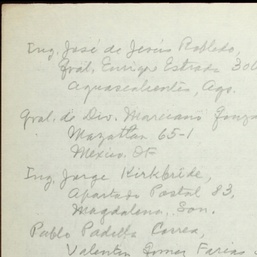 Ing. José de Jesús Robledo,
Gral. Enrique Estrada 306
Aguascalientes, Ags.
Gral. de Div. Marciano Gonza
Mazatlán 65-1
México. DF
Ing. Jorge Kirkbride,
Apartado Postal 83,
Magdalena, Son.
Pablo Padilla Correa,
Valentin Gomez Farias